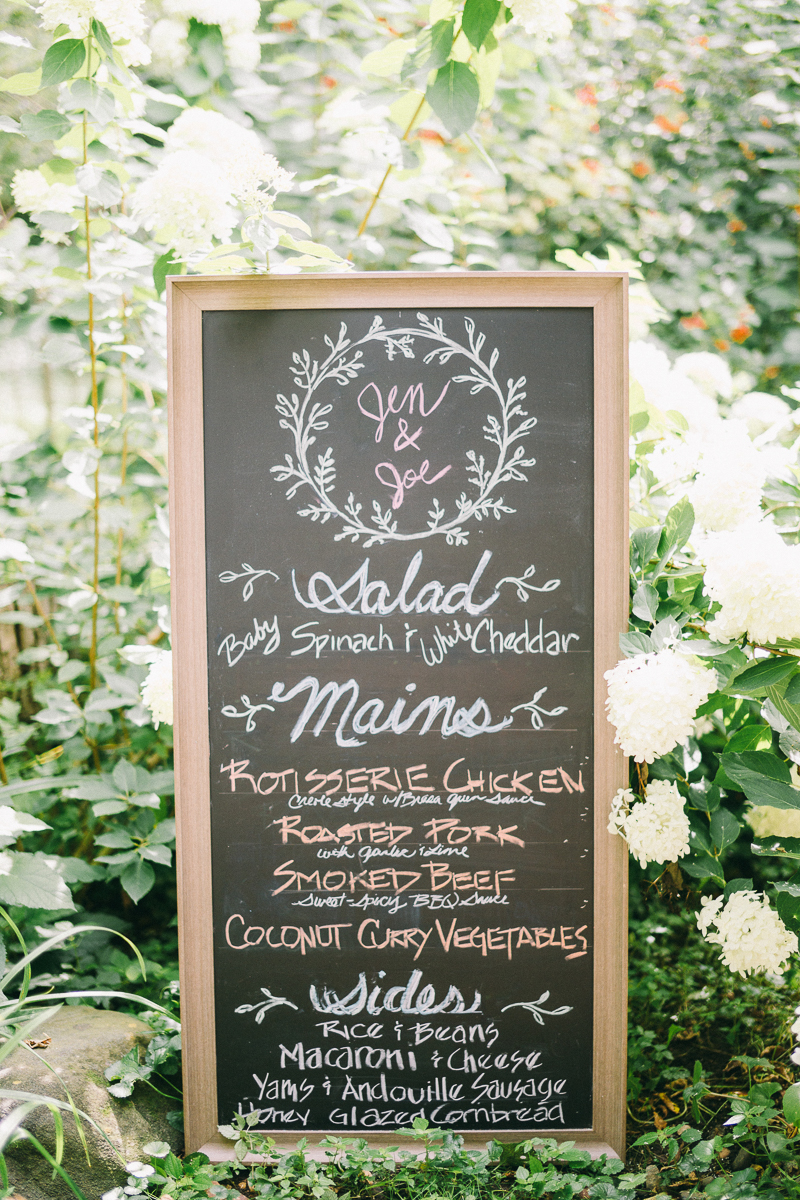 Jen
&
Joe
Salad
Baby Spinach & White Cheddar
Mains
ROTISSERIE CHICKEN
style w/ sauce
ROASTED PORK
with garlic & Lime
SMOKED BEEF
Sweet-Spicy BBQ Sauce
COCONUT CURRY VEGETABLES
Sides
Rice & Beans
Macaroni & Cheese
Yams & Andouille Sausage
Honey Glazed Cornbread